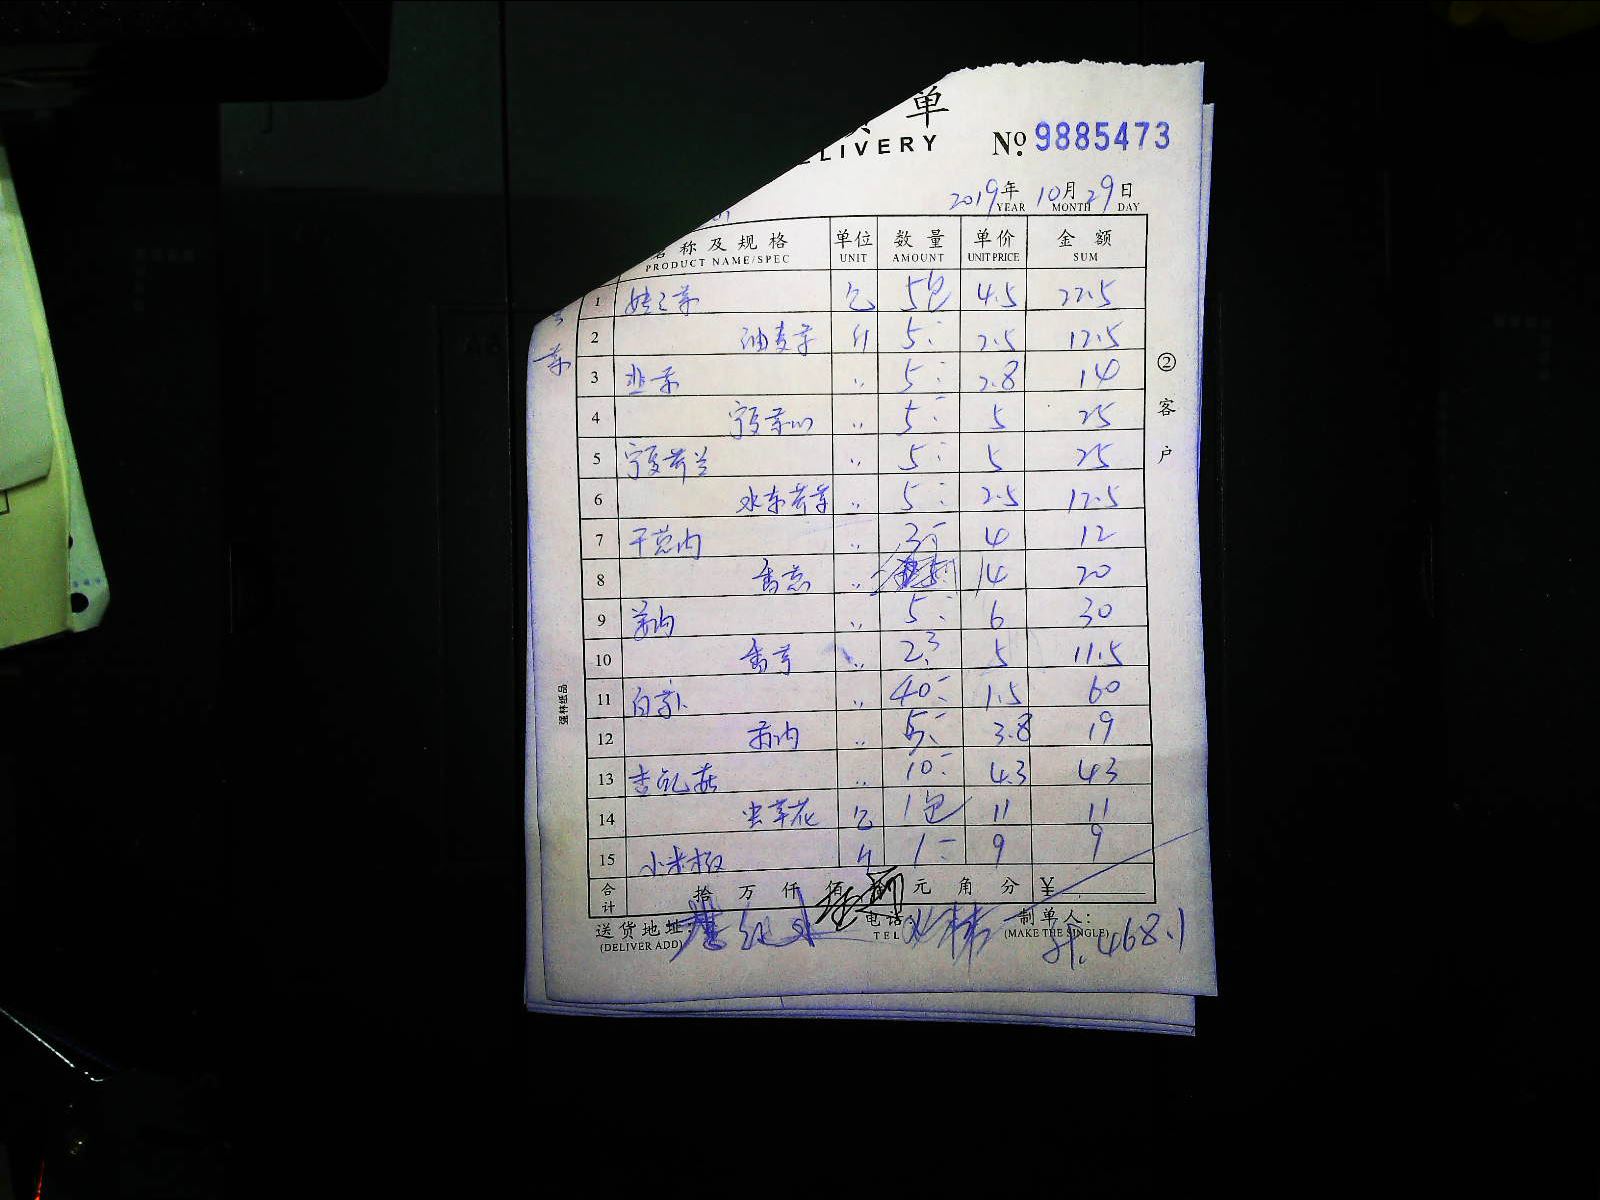 单
LIVERY № 9885473
2019年 10月 29日
YEAR MONTH DAY
称及规格 单位 数量 单价 金额
PRODUCT NAME/SPEC UNIT AMOUNT UNIT PRICE SUM
1 娃娃菜 包 5包 4.5 22.5
2 油麦菜 斤 5 2.5 12.5
3 韭菜 〃 5 2.8 14
4 宁夏菜心 〃 5 5 25
5 宁夏芥兰 〃 5 5 25
6 水东芥菜 〃 5 2.5 12.5
7 干葱肉 〃 3 4 12
8 香葱 〃 4 20
9 〃 5 6 30
10 香芹 〃 2.3 5 11.5
11 白 〃 40 1.5 60
12 〃 5 3.8 19
13 杏鲍菇 〃 10 4.3 43
14 虫草花 包 1包 11 11
15 小米椒 斤 1 9 9
合计 拾 万 仟 佰 元 角 分 ¥
送货地址:
(DELIVER ADD)
电话:
TEL
制单人:
(MAKE THE SINGLE)
468.1
② 客户
强林纸品